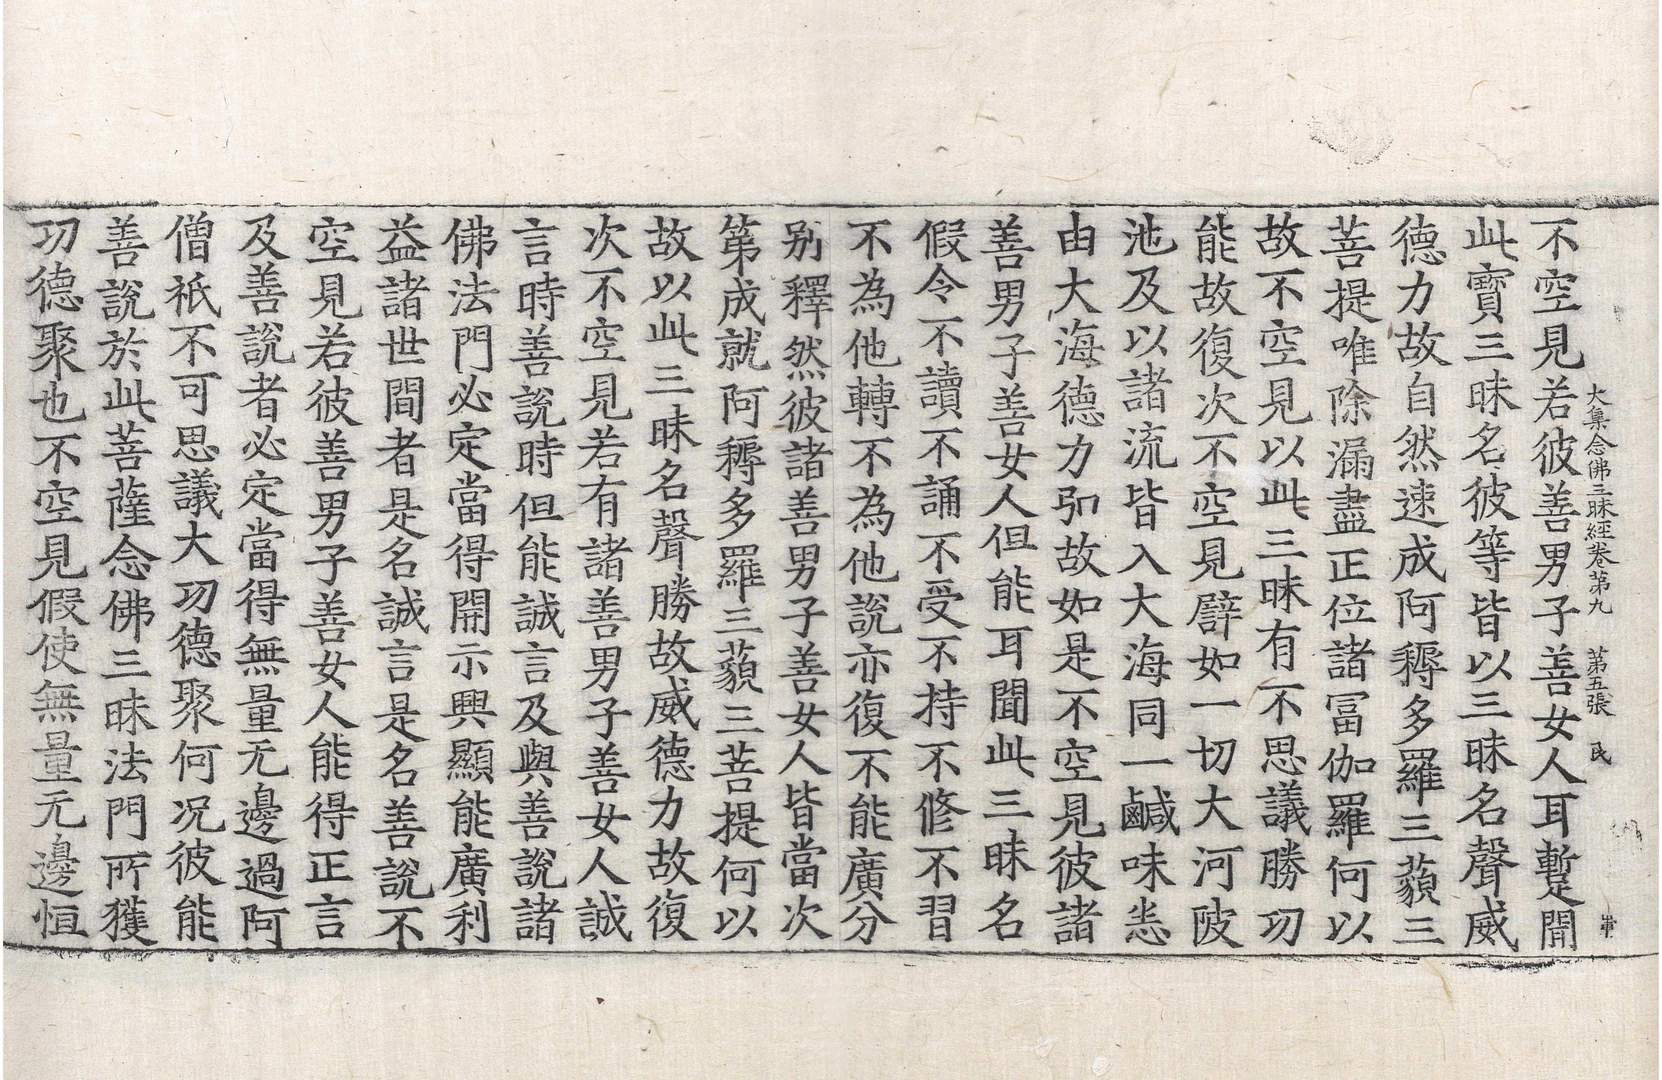 大集念佛三昧經卷第九 第五張 民
不空見若彼善男子善女人耳蹔聞
此寶三昧名彼等皆以三昧名聲威
德力故自然速成阿耨多羅三藐三
菩提唯除漏盡正位諸冨伽羅何以
故不空見以此三昧有不思議勝功
能故復次不空見譬如一切大河陂
池及以諸流皆入大海同一鹹味恙
由大海德力引故如是不空見彼諸
善男子善女人但能耳聞此三昧名
假令不讀不誦不受不持不修不習
不為他轉不為他說亦復不能廣分
別釋然彼諸善男子善女人皆當次
第成就阿耨多羅三藐三菩提何以
故以此三昧名聲勝故威德力故復
次不空見若有諸善男子善女人誠
言時善說時但能誠言及與善說諸
佛法門必定當得開示興顯能廣利
益諸世間者是名誠言是名善說不
空見若彼善男子善女人能得正言
及善說者必定當得無量无邊過阿
僧祇不可思議大功德聚何況彼能
善說於此菩薩念佛三昧法門所獲
功德聚也不空見假使無量无邊恒